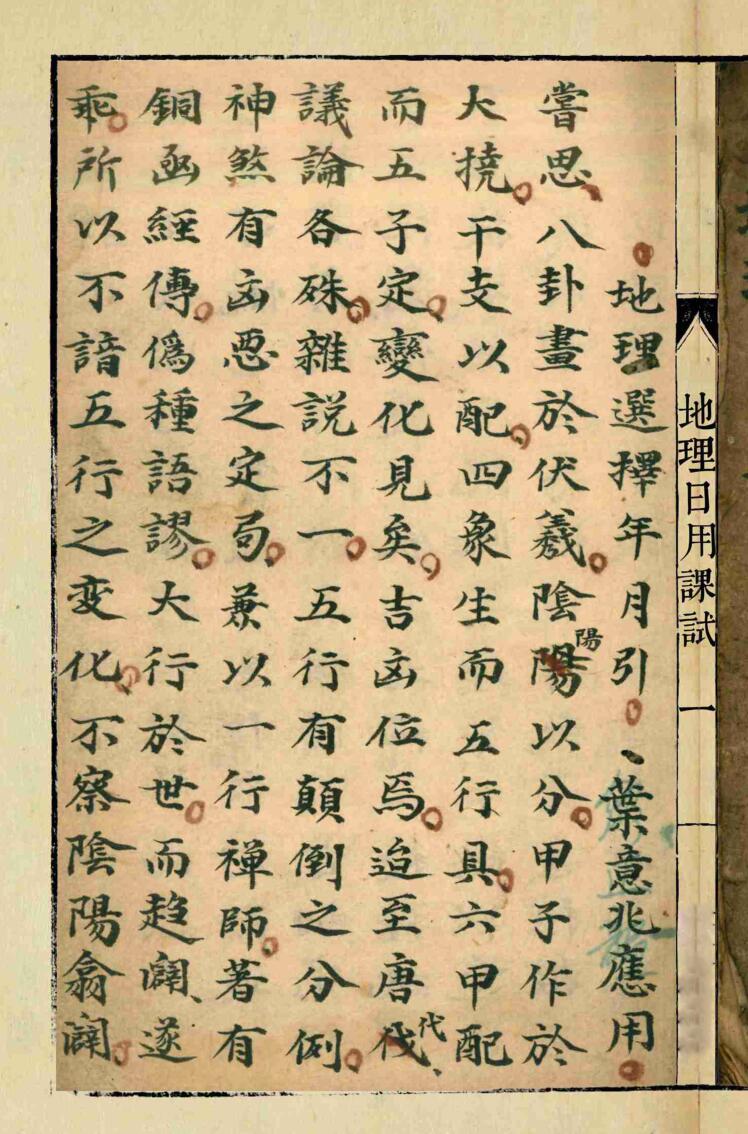 地理日用課試 一
地理選擇年月引、葉意兆應用
嘗思八卦畫於伏羲陰陽陽以分甲子作於
大撓干支以配四象生而五行具六甲配
而五子定變化見矣吉凶位焉迨至唐伐代
議論各硃雜説不一五行有顛倒之分例
神煞有凶惡之定局兼以一行禅師著有
銅函經傳僞種語謬大行於世而趋闢遂
乖所以不諳五行之变化不察陰陽翕闢